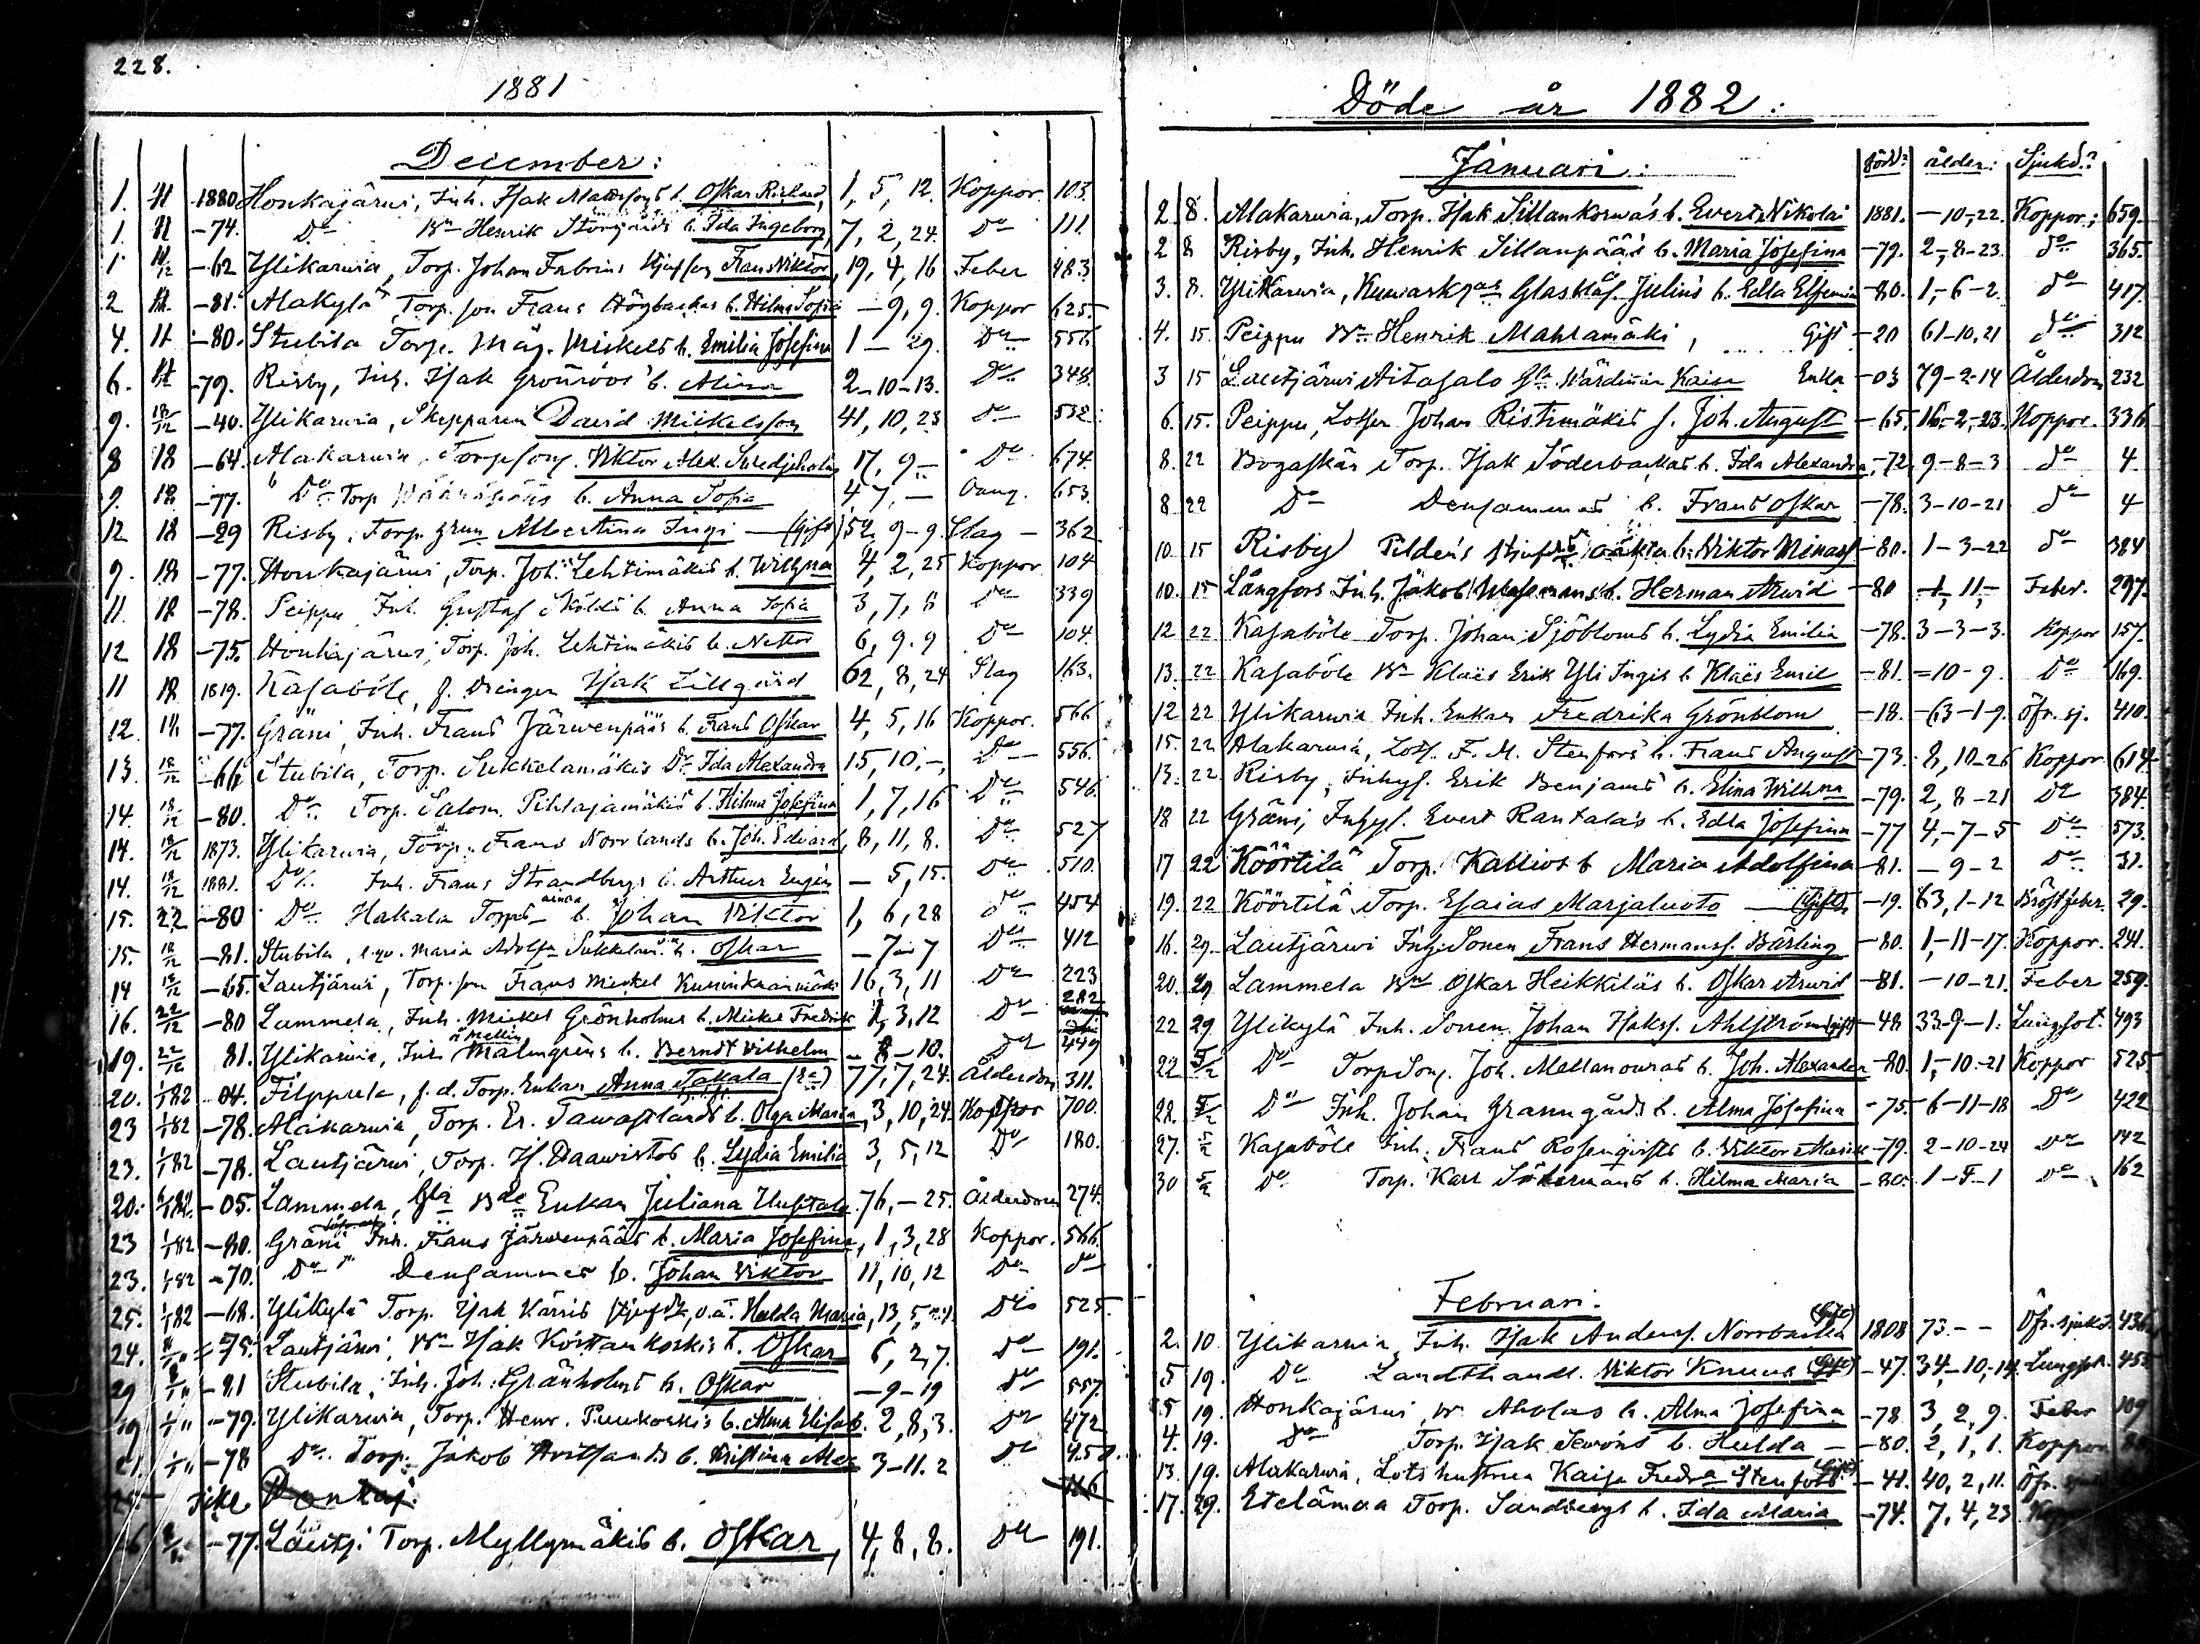 228.
1881
December:
1. 11 1880 Honkajärwi, Inh. Isak Mattssons b. Oskar Richard, 1, 5, 12 Koppor. 103.
1. 11 -74. Do Bn Henrik Storgårds b. Ida Ingeborg, 7, 2, 24. Do 111.
1 11/12 -62 Ylikarwia, Torp. Johan Fabrins Frans Viktor, 19, 4, 16 Feber 483
2 11. -81. Alakylä Torp. son Frans Högbackas b. Hilma Sofia -9, 9. Koppor 625.
4. 11 -80. Stubila Torp. Mickels b. Emilia Josefina 1 - 29. Do 556
6. 11 -79. Risby, Inh. Isak Grönroos b. Alina 2-10-13. Do 348.
9. 18/12 -40. Ylikarwia, Skepparen David Mickelsson 41, 10, 23 Do 532.
8 18 -64. Alakarwia Torpson. Viktor Alex. 17, 9- Do 674.
9. 18 -77. Do Torp b. Anna Sofia 4 7, - 653.
12 18 -29 Risby, Torp. Albertina Ingi (gift) 52, 9-9 Slag - 362
9. 18 -77. Honkajärwi, Torp. Joh. Lehtimäkis b. Wilhna 4, 2, 25 Koppor 104
11 18 -78. Peippu Inh. Gustaf Skölds b. Anna Sofia 3, 7, 8 Do 339
12 18 -75. Honkajärwi, Torp. Joh. Lehtimäkis b. 6, 9. 9 Do 104.
11 18 1819. Kasaböle, f. Drängen Isak Lillgård 62, 8, 24 Slag 163.
12. -77. Gräni, Inh. Frans Järwenpääs b. Frans Oskar 4, 5, 16 Koppor. 566
13. 18/12 -66 Stubila, Torp. Sukkelamäkis Dr. Ida Alexandra 15, 10, -, Do 556.
14. 18/12 -80. Do Torp. Salom. Pihlajamäkis b. Hilma Josefina 1, 7, 16 Do 546.
14. 18/12 1873. Ylikarwia, Torp. Frans Norrlands b. Joh. Edvard, 8, 11, 8. Do 527
14. 18/12 1881. Do Inh. Frans Strandbergs b. Arthur Eugén - 5, 15. Do 510.
15. 22 -80 Do Hakala Torps b. Johan Viktor 1, 6, 28 do 454
15. 18/12 -81. Stubila, Maria Adolfa b. Oskar - 7-7 Do 412
14 18/12 -65. Lautjärwi, Torp. son Frans Mickel 16, 3, 11 Do 223
16. 22/12 -80 Lammela, Inh. Mickel Grönholms b. Mickel Fredrik 1, 3, 12 Do 282
19. 22/12 81. Ylikarwia, Inh. Malmgrens b. Berndt Vilhelm - 8 - 10. Do 449
20. 1/1 82 -04. Filppula, f. d. Torp. Enkan Anna Takala 77, 7, 24. Ålderdom 311.
23 1/1 82 -78. Alakarwia, Torp. Er. Tawastlands b. Olga Maria, 3, 10, 24. Koppor 700.
23. 1/1 82 -78. Lautjärwi, Torp. Is. Daawistos b. Lydia Emilia 3, 5, 12 Do 180.
20. 1/1 82. -05. Lammela, Enkan Juliana Uusitalo 76, - 25. Ålderdom 274.
23 1/1 82 -80. Gräni Inh. Frans Järwenpääs b. Maria Josefina, 1, 3, 28 Koppor. 566.
23. 1/1 82 -70. Do Densammes b. Johan Viktor 11, 10, 12 Do do
25. 1/1 82 -68. Ylikylä Torp. Isak Kärris Hulda Maria, 13, 5, Do 525.
24. -75. Lautjärwi, Bn Isak b. Oskar 6, 2, 7. Do 191.
29 -81 Stubila, Inh. Joh. Gränholms b. Oskar - 9 - 19 Do 557.
19 -79. Ylikarwia, Torp. Henr. Puukoskis b. Alma Elisab. 2, 8, 3. Do 472
21. -78 Do Torp. Jakob b. Kristina Alex 3-11. 2 Do
-77. Lautj. Torp. Myllymäkis b. Oskar, 4, 8, 8. Do 191.
Döde år 1882:
Januari: född: ålder: Sjukd.
2 8. Alakarwia, Torp. Isak Sillankorwas b. Evert Nikolai 1881. -10-22. Koppor.; 659.
2 8 Risby, Inh. Henrik Sillanpääs b. Maria Josefina -79. 2-8-23. do 365.
3. 8. Ylikarwia, Julius b. Edla Elfemia -80. 1-6-2. do 417.
4. 15 Peippu Bn Henrik Mahlamäki, Gift -20 61-10, 21 do 312
3 15 Lautjärwi Aitasalo Gla Wärdinnan Kaisa Enka -03 79-2-14 Ålderdom 232
6. 15. Peippu, Lotsen Johan Ristimäkis s. Joh. August -65. 16-2-23. Koppor. 336
8. 22 Bogaskär Torp. Isak Söderbackas b. Ida Alexandra, -72 9-8-3 do 4
8 22 Do Densammes b. Frans Oskar -78. 3-10-21 do 4
10. 15 Risby b. Viktor -80. 1-3-22 do 384
10. 15 Långfors Inh. Jakob b. Herman Arwid -80 1, 11, - Feber. 297.
12 22 Kasaböle Torp. Johan Sjöbloms b. Lydia Emilia -78. 3-3-3. Koppor 157.
13. 22 Kasaböle Bn Klaës Erik Yli Ingis b. Klaës Emil -81. =10-9. Do 169.
12 22 Ylikarwia Inh. Enkan Fredrika Grönblom -18. -63-1-9. Öfr. sj. 410.
15. 22 Alakarwia, Lots. F. M. Stenfors b. Frans August -73. 8, 10-26 Koppor 614
13. 22 Risby, Inhys. Erik Benjams b. Elina Wilhna -79. 2, 8-21 Do 384.
18 22 Gräni, Inhys. Evert Rantalas b. Edla Josefina -77 4,-7-5 Do 573.
17 22 Köörtilä Torp. Kallios b Maria Adolfina -81. - 9-2 Do 31.
19. 22 Köörtilä Torp. Esaias Marjaluoto (Gift) -19. 63, 1-12 Bröstfeber. 29.
16. 29. Lautjärwi Inh. Sonen Frans Hermanss. Bärling -80. 1,-11-17. Koppor. 241.
20. 29 Lammela Bn Oskar Heikkiläs b. Oskar Arwid -81. -10-21. Feber 259.
22 29. Ylikylä Inh. Sonen Johan Isakss. Ahlström (gift) -48 33-9-1. Lungsot. 493
22 5/2 Do Torpson. Joh. b. Joh. Alexander -80. 1,-10-21 Koppor 525
22. 5/2 Do Inh. Johan Granngårds b. Alma Josefina -75. 6-11-18 Do 422
27. 5/2 Kasaböle Inh. Frans Rosenqvists b. Viktor -79. 2-10-24 Do 142
30 5/2 Do Torp. Karl Södermans b. Hilma Maria -80. 1-5-1 Do 162
Februari.
2. 10. Ylikarwia Inh. Isak Anderss. Norrbacka (Gift) 1808 73. - - Öfr. sjukd. 436
5 19. Do Landthandl. Viktor Knuus (Gift) -47. 34,-10,-14. Lungsot. 453
5 19. Honkajärwi, Bn Aholas b. Alma Josefina -78. 3, 2, 9. Feber 109
4. 19. Do Torp. Isak b. Hulda -80. 2, 1, 1. Koppor
13. 19. Alakarwia, Lots hustrun Kaisa Fredra Stenfors (Gift) -41. 40, 2, 11. Öfr.
17. 29. Etelämaa Torp. Sandbergs b. Ida Maria -74. 7, 4, 23.